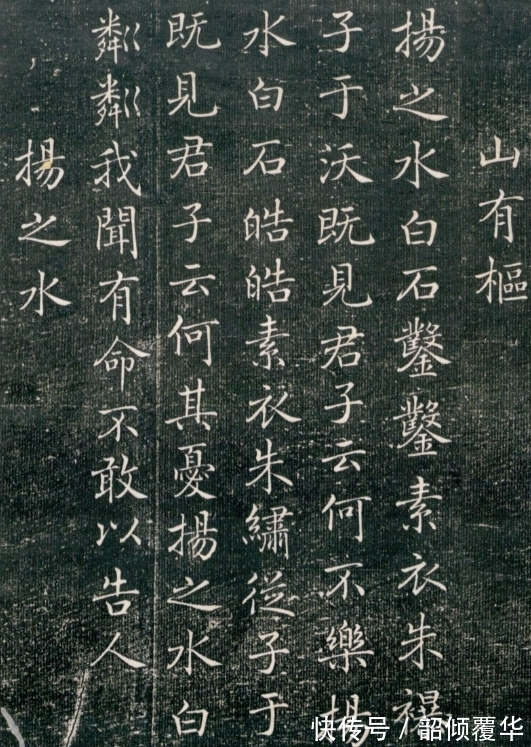 山有樞
揚之水白石鑿鑿素衣朱襮
子于沃既見君子云何不樂揚
水白石皓皓素衣朱繡從子于
既見君子云何其憂揚之水白
粼粼我聞有命不敢以告人
揚之水
快传号／韶倾覆华